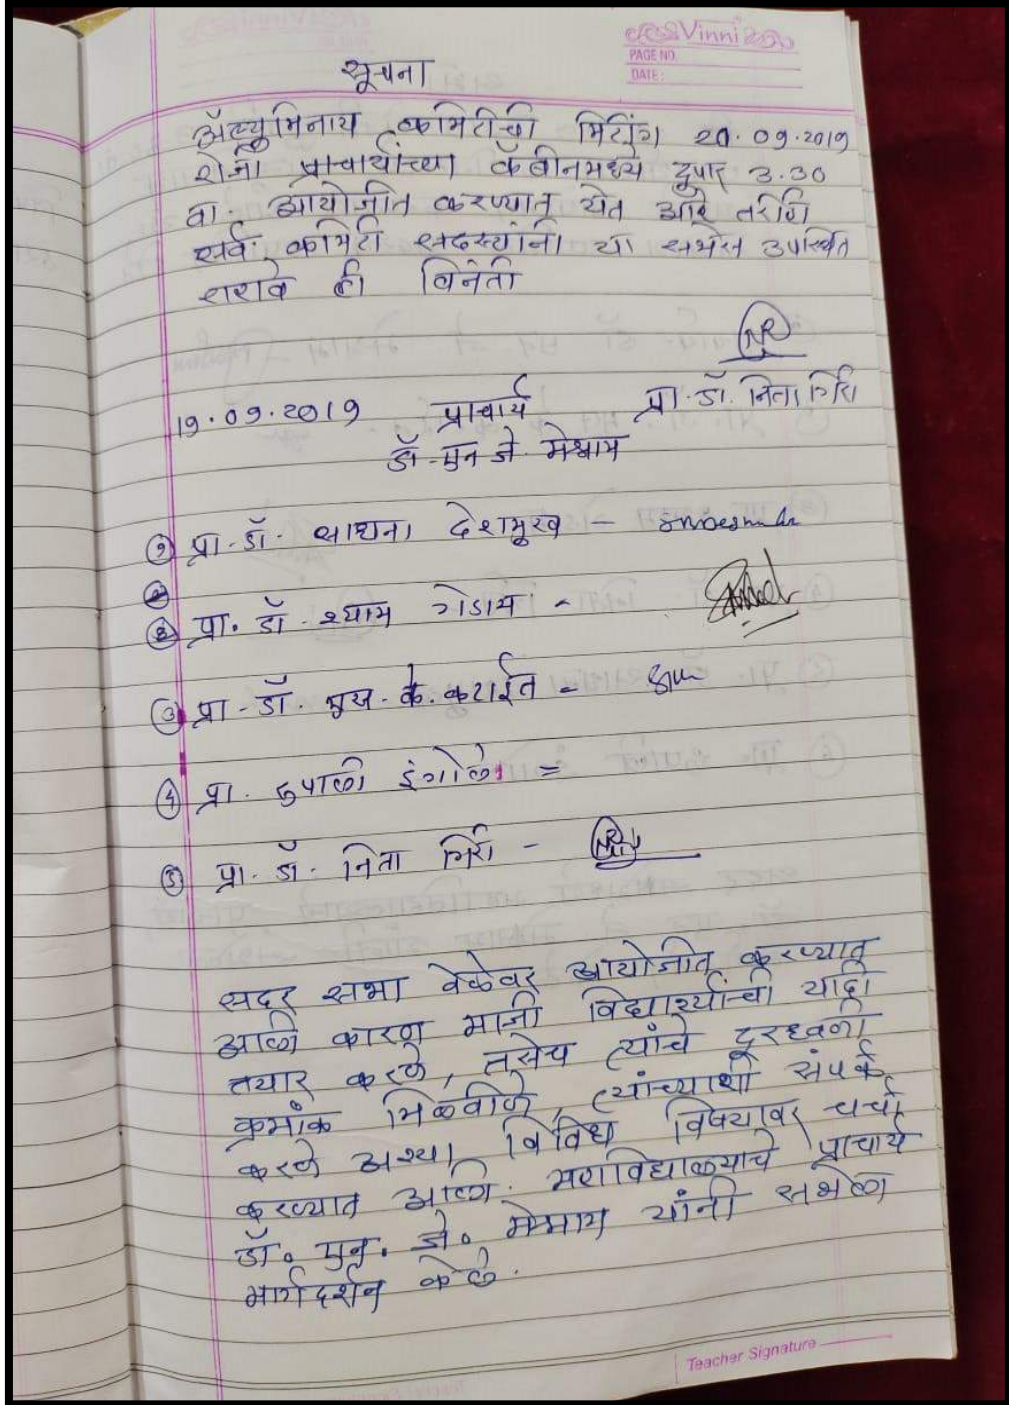 Vinni
PAGE NO.
DATE:
सूचना
अॅल्युमिनाय कमिटीची मिटींग 20.09.2019
रोजी प्राचार्यांच्या कॅबीनमध्ये दुपार 3.30
वा. आयोजीत करण्यात येत आहे तरी
सर्व कमिटी सदस्यांनी या सभेस उपस्थित
राहावे ही विनंती
NR
19.09.2019 प्राचार्य प्रा.डॉ. निता गिरी
डॉ. एन जे. मेश्राम
① प्रा. डॉ. साधना देशमुख -
② प्रा. डॉ. श्याम गेडाम -
③ प्रा. डॉ. एस. के. कटाईत -
④ प्रा. रुपाली इंगोले =
⑤ प्रा. डॉ. निता गिरी -
सदर सभा वेळेवर आयोजीत करण्यात
आली कारण माजी विद्यार्थ्यांची यादी
तयार करणे, तसेच त्यांचे दूरध्वनी
क्रमांक मिळवीणे, त्यांच्याशी संपर्क
करणे अश्या विविध विषयावर चर्चा
करण्यात आली. महाविद्यालयाचे प्राचार्य
डॉ. एन. जे. मेश्राम यांनी सभेला
मार्गदर्शन केले.
Teacher Signature